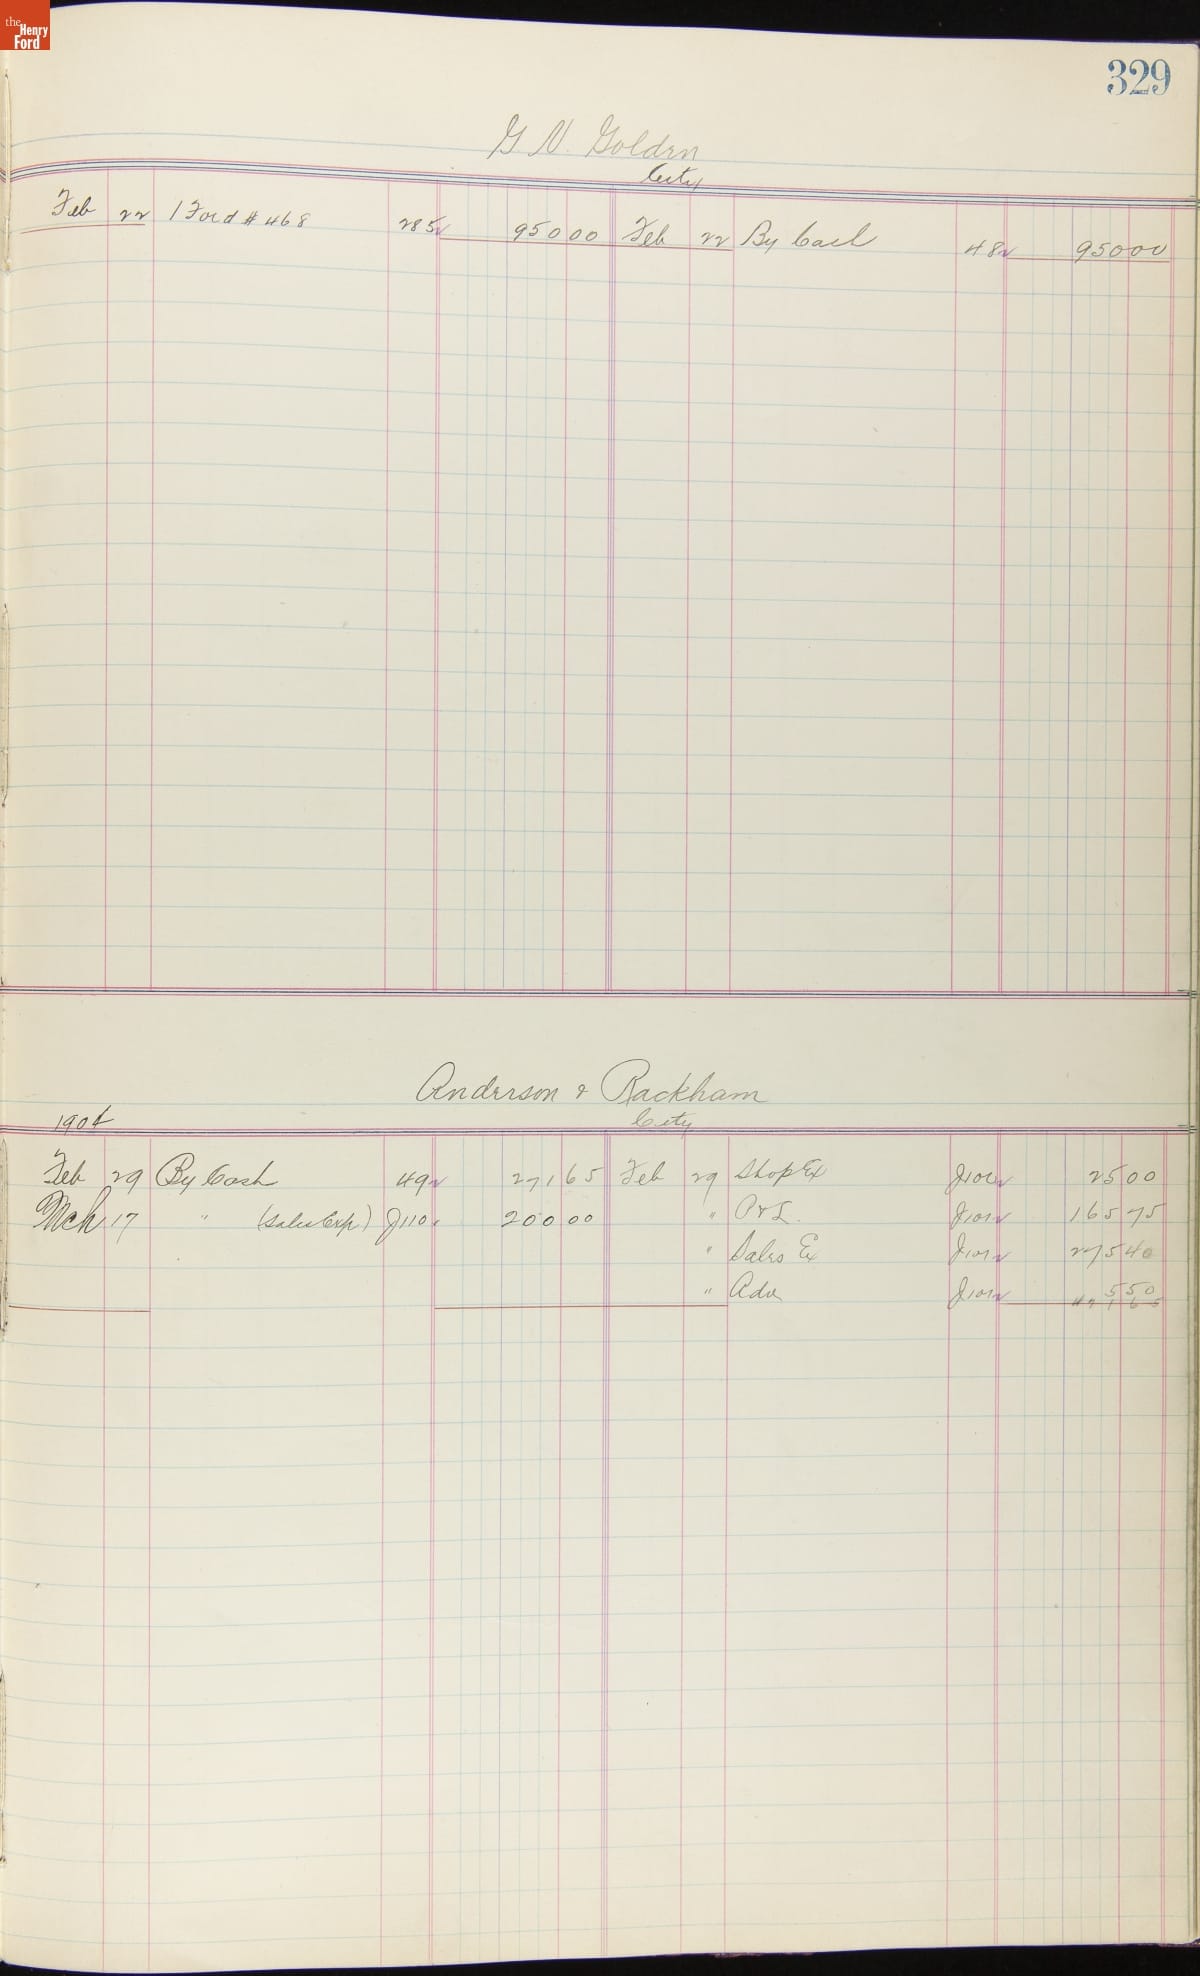 the Henry Ford
329
G. N. Golden
City
Feb 22 1 Ford # 468 285 950 00 Feb 22 By Cash 48 950 00
Anderson & Rackham
1904 City
Feb 29 By Cash 49 271 65 Feb 29 Shop Ex J101 25 00
Mch 17 " (Sales Exp) J110 200 00 " P & L. J101 165 75
" Sales Ex J101 275 40
" Adv J101 5 50
471 65